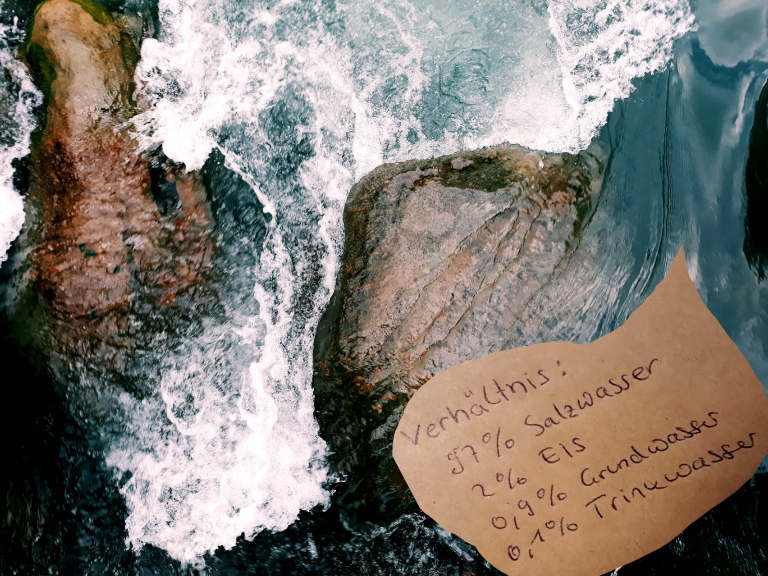 Verhältnis:
97% Salzwasser
2% Eis
0,9% Grundwasser
0,1% Trinkwasser